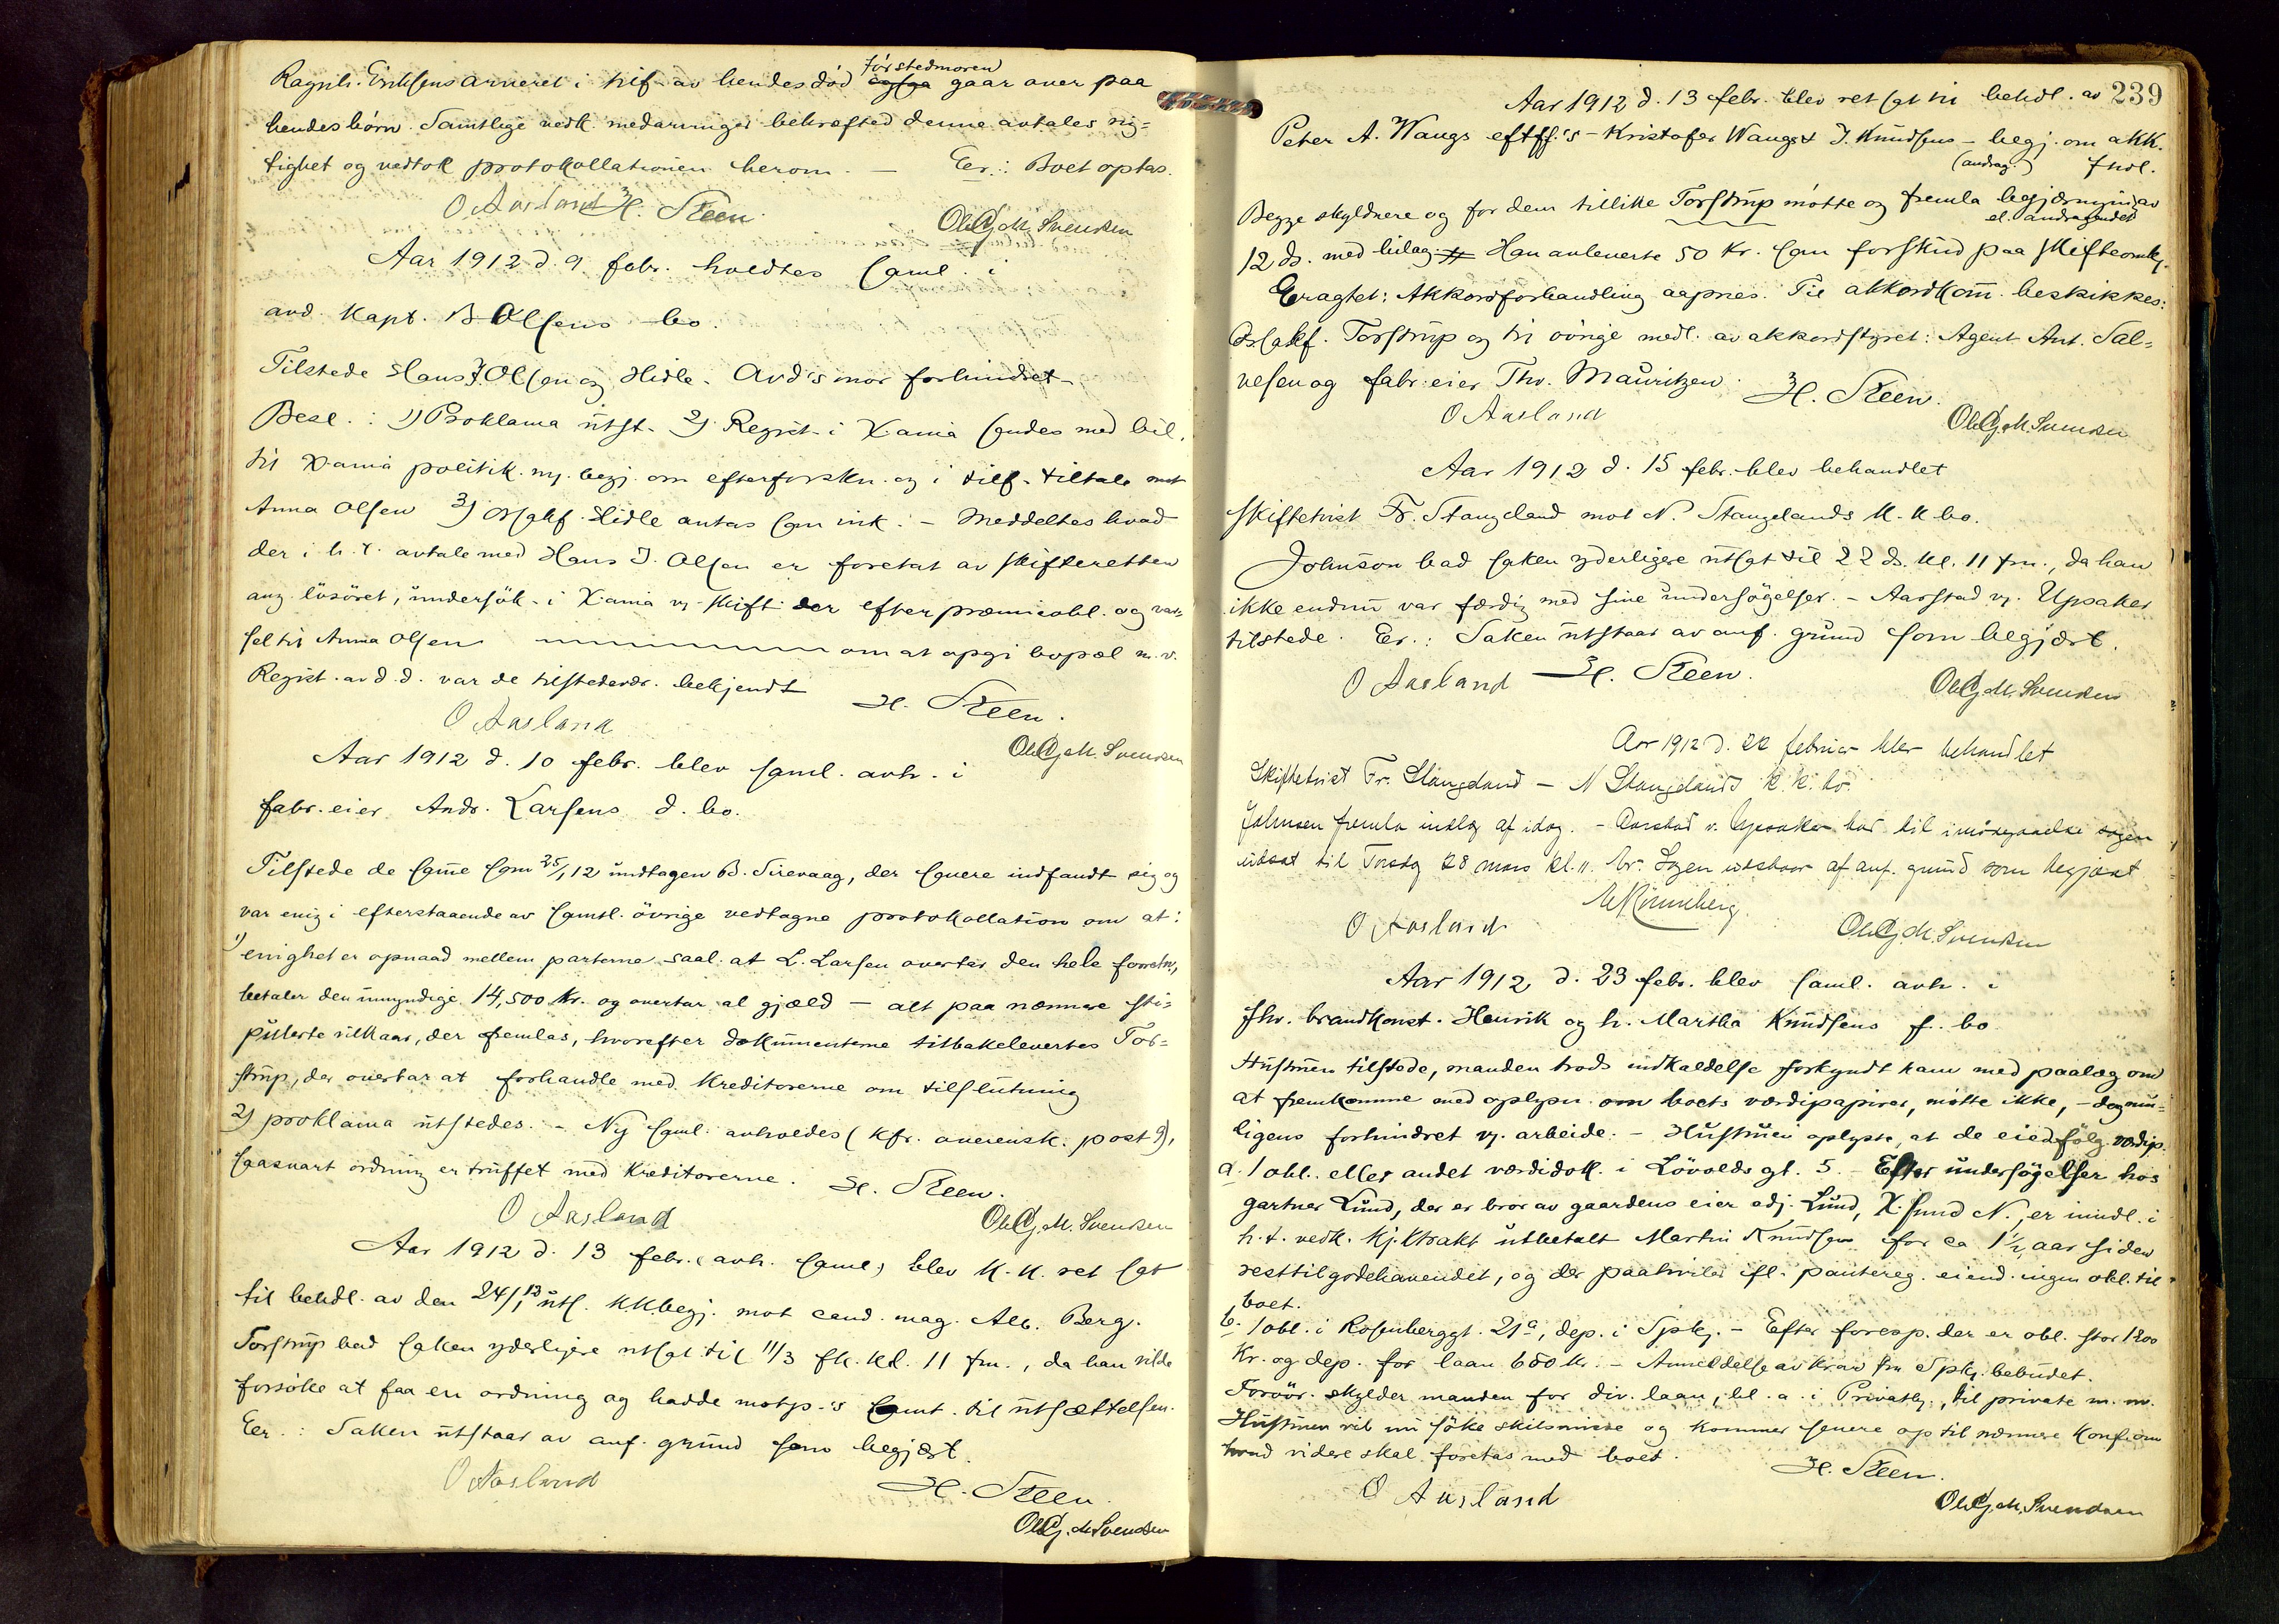 Ragnh. Erichsens arveret i tilf. av hendes død før stedmoren ogsaa gaar over paa
hendes børn. Samtlige vedk. medarvinger bekræfted denne avtales rig=
tighet og vedtok protokollationen herom. — Er.: Boet optas.
O Aasland H. Steen.
Ole G. M. Svendsen
Aar 1912 d. 9 febr. holdtes saml. i
avd. Kapt. B Olsens bo.
Tilstede Hans J. Olsen og Hidle. Avd's mor forhindret.
Besl.: 1) Proklama utst. 2) Regist. i X.ania sendes med bil.
til X.ania politik. m. begj. om efterforskn. og i tilf. tiltale mot
Anna Olsen 3) O.r.sakf. Hidle antas som ink. — Meddeltes hvad
der i h. t. avtale med Hans J. Olsen er foretat av skifteretten
ang. løsøret, undersøk. i X.ania v. skift. der efter præmieobl. og var=
sel til Anna Olsen om at opgi bopæl m. v.
Regist. av d. d. var de tilstedevær. bekjendt
H. Steen.
O Aasland
Ole G. M. Svendsen
Aar 1912 d. 10 febr. blev saml. avh. i
fabr. eier Andr. Larsens d. bo.
Tilstede de samme som 25/1 12 undtagen B. Sirevaag, der senere indfandt sig og
var enig i efterstaaende av samtl. øvrige vedtagne protokollation om at:
1) enighet er opnaad mellem parterne saal. at L. Larsen overtar den hele forretn.,
betaler den umyndige 14,500 kr. og overtar al gjæld — alt paa nærmere sti=
pulerte vilkaar, der fremlas, hvorefter dokumenterne tilbakelevertes Tor=
strup, der overtar at forhandle med kreditorerne om tilslutning
2) proklama utstedes. — Ny saml. avholdes (kfr. overensk. post 9),
saasnart ordning er truffet med kreditorerne. H. Steen.
O Aasland
Ole G. M. Svendsen
Aar 1912 d. 13 febr. (avh. saml.) blev K. K. ret sat
til behdl. av den 24/1 12 uts. K.K.begj. mot cand. mag. Alb. Berg.
Torstrup bad saken yderligere utsat til 11/3 fk. kl. 11 fm., da han vilde
forsøke at faa en ordning og hadde motp.'s samt. til utsættelsen.
Er.: Saken utstaar av anf. grund som begjært.
O Aasland
H. Steen.
Ole G. M. Svendsen
239
Aar 1912 d. 13 febr. blev ret sat til behdl. av
Peter A. Waugs eftff.'s — Kristofer Waugs & J. Knudsens — begj. om akk.
(andrag.) fhdl.
Begge skyldnere og for dem tillike Torstrup møtte og fremla begjæringen av
el. andragendet
12 ds. med bilag. Han avleverte 50 kr. som forskud paa skifteomk.
Eragtet: Akkordforhandling aapnes. Til akkordkom. beskikkes:
O.r.sakf. Torstrup og til øvrige medl. av akkordstyret: Agent Ant. Sal=
vesen og fabr. eier Thv. Mauritzen. H. Steen.
O Aasland
Ole G. M. Svendsen
Aar 1912 d. 15 febr. blev behandlet
Skiftetvist Fr. Stangeland mot N. Stangelands K. K. bo.
Johnson bad saken yderligere utsat til 22 ds. kl. 11 fm., da han
ikke endnu var færdig med sine undersøgelser. — Aarstad v. Upsaker
tilstede. Er.: Saken utstaar av anf. grund som begjært.
O Aasland H. Steen.
Ole G. M. Svendsen
Aar 1912 d. 22 februar blev behandlet
Skiftetvist Fr. Stangeland — N Stangelands K. K. bo.
Johnson fremla indlæg af idag. — Aarstad v. Upsaker bad til imødegaaelse sagen
udsat til Torsdag 28 mars kl. 11. Er. Sagen udstaar af anf. grund som begjært
O Aasland
Ole G. M. Svendsen
Aar 1912 d. 23 febr. blev saml. avh. i
fhv. brandkonst. Henrik og h. Martha Knudsens f. bo.
Hustruen tilstede, manden trods indkaldelse forkyndt ham med paalæg om
at fremkomme med oplysn. om boets værdipapirer, møtte ikke, — dog mu=
ligens forhindret v. arbeide. — Hustruen oplyste, at de eied følg. værdip.
a. 1 obl. eller andet værdidok. i Løvoldsgt. 5. — Efter undersøgelser hos
gartner Lund, der er bror av gaardens eier adj. Lund, X.sund N., er imidl. i
h. t. vedk. kj.ktrakt utbetalt Martin Knudsen for ca 1½ aar siden
resttilgodehavendet, og der paahviler ifl. pantereg. eiend. ingen obl. til
boet.
b. 1 obl. i Rosenberggt. 21a, dep. i Spk. — Efter foresp. der er obl. stor 1200
Kr. og dep. for laan 650 kr. — Anmeldelse av krav fra Spk. bebudet.
Forøvr. skylder manden for div. laan, bl. a. i Privatbk., til private m. m.
Hustruen vil nu søke skilsmisse og kommer senere op til nærmere konf. om
hvad videre skal foretas med boet. H. Steen.
O Aasland
Ole G. M. Svendsen